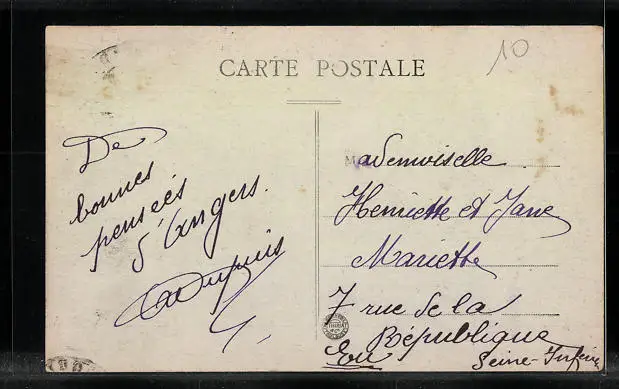 10
CARTE POSTALE
De
bonnes
pensées
d'Angers.
Dupuis
Mademoiselle
Henriette et Jane
Mariette
7 rue de la
République
Eu
Seine-Inférie